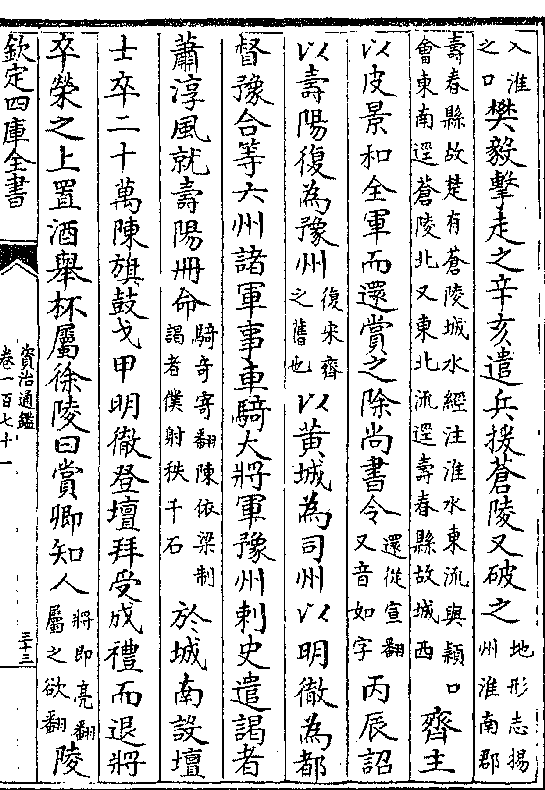 入淮
之口樊毅擊走之辛亥遣兵援蒼陵又破之地形志揚
州淮南郡
壽春縣故楚有蒼陵城水經注淮水東流與潁口
會東南逕蒼陵北又東北流逕壽春縣故城西齊主
以皮景和全軍而還賞之除尚書令還從宣翻
又音如字丙辰詔
以壽陽復為豫州復來齊
之舊也以黃城為司州以明徹為都
督豫合等六州諸軍事車騎大將軍豫州刺史遣謁者
蕭淳風就壽陽冊命騎奇寄翻陳依梁制
謁者僕射秩千石於城南設壇
士卒二十萬陳旗鼓戈甲明徹登壇拜受成禮而退將
卒榮之上置酒舉杯屬徐陵曰賞卿知人將即亮翻
屬之欲翻陵
欽定四庫全書
資治通鑑
卷一百七十一
三十三